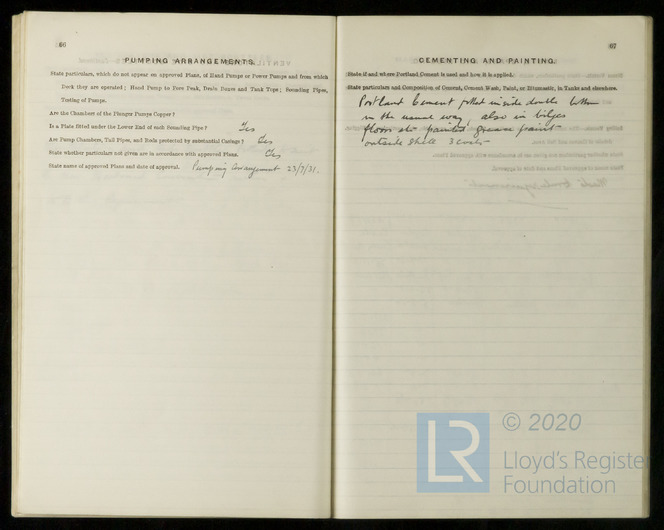 66
PUMPING ARRANGEMENTS.
State particulars, which do not appear on approved Plans, of Hand Pumps or Power Pumps and from which
Deck they are operated; Hand Pump to Fore Peak, Deale Boxes and Tank Tops; Sounding Pipes,
Testing of Pumps.
Are the Chambers of the Plunger Pumps Copper?
Is a Plate fitted under the Lower End of each Sounding Pipe? Yes
Are Pump Chambers, Tail Pipes, and Rods protected by substantial Casings? Yes
State whether particulars not given are in accordance with approved Plans. Yes
State name of approved Plans and date of approval. Pumping Arrangement 23/7/31.
67
CEMENTING AND PAINTING.
State if and where Portland Cement is used and how it is applied.
State particulars and Composition of Cement, Cement Wash, Paint, or Bitumastic, in Tanks and elsewhere.
Portland Cement fitted inside double bottom
in the usual way, also in bilges
floors etc painted grease paint
outside shell 3 coats
© 2020
LR
Lloyd's Register
Foundation